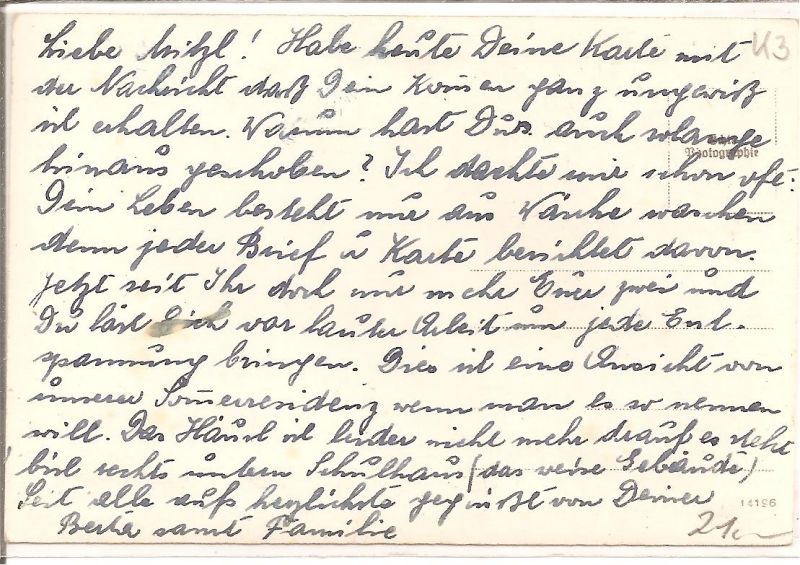 Liebe Mitzl! Habe heute Deine Karte mit
K3
der Nachricht daß Dein Komen ganz ungewiß
ist erhalten. Warum hast Du's auch solange
Photographie
hinaus geschoben? Ich dachte mir schon oft:
Dein Leben besteht nur aus Wäsche waschen
denn jeder Brief u Karte berichtet davon.
Jetzt seit Ihr doch nur mehr Euer zwei und
Du läst Dich vor lauter Arbeit um jede Ent-
spannung bringen. Dies ist eine Ansicht von
unserer Somerresidenz wenn man es so nennen
will. Das Häusl ist leider nicht mehr drauf es steht
biśl rechts untern Schulhaus (das weise Gebäude)
Seit alle aufs herzlichste gegrüßt von Deiner
14196
Berta samt Familie